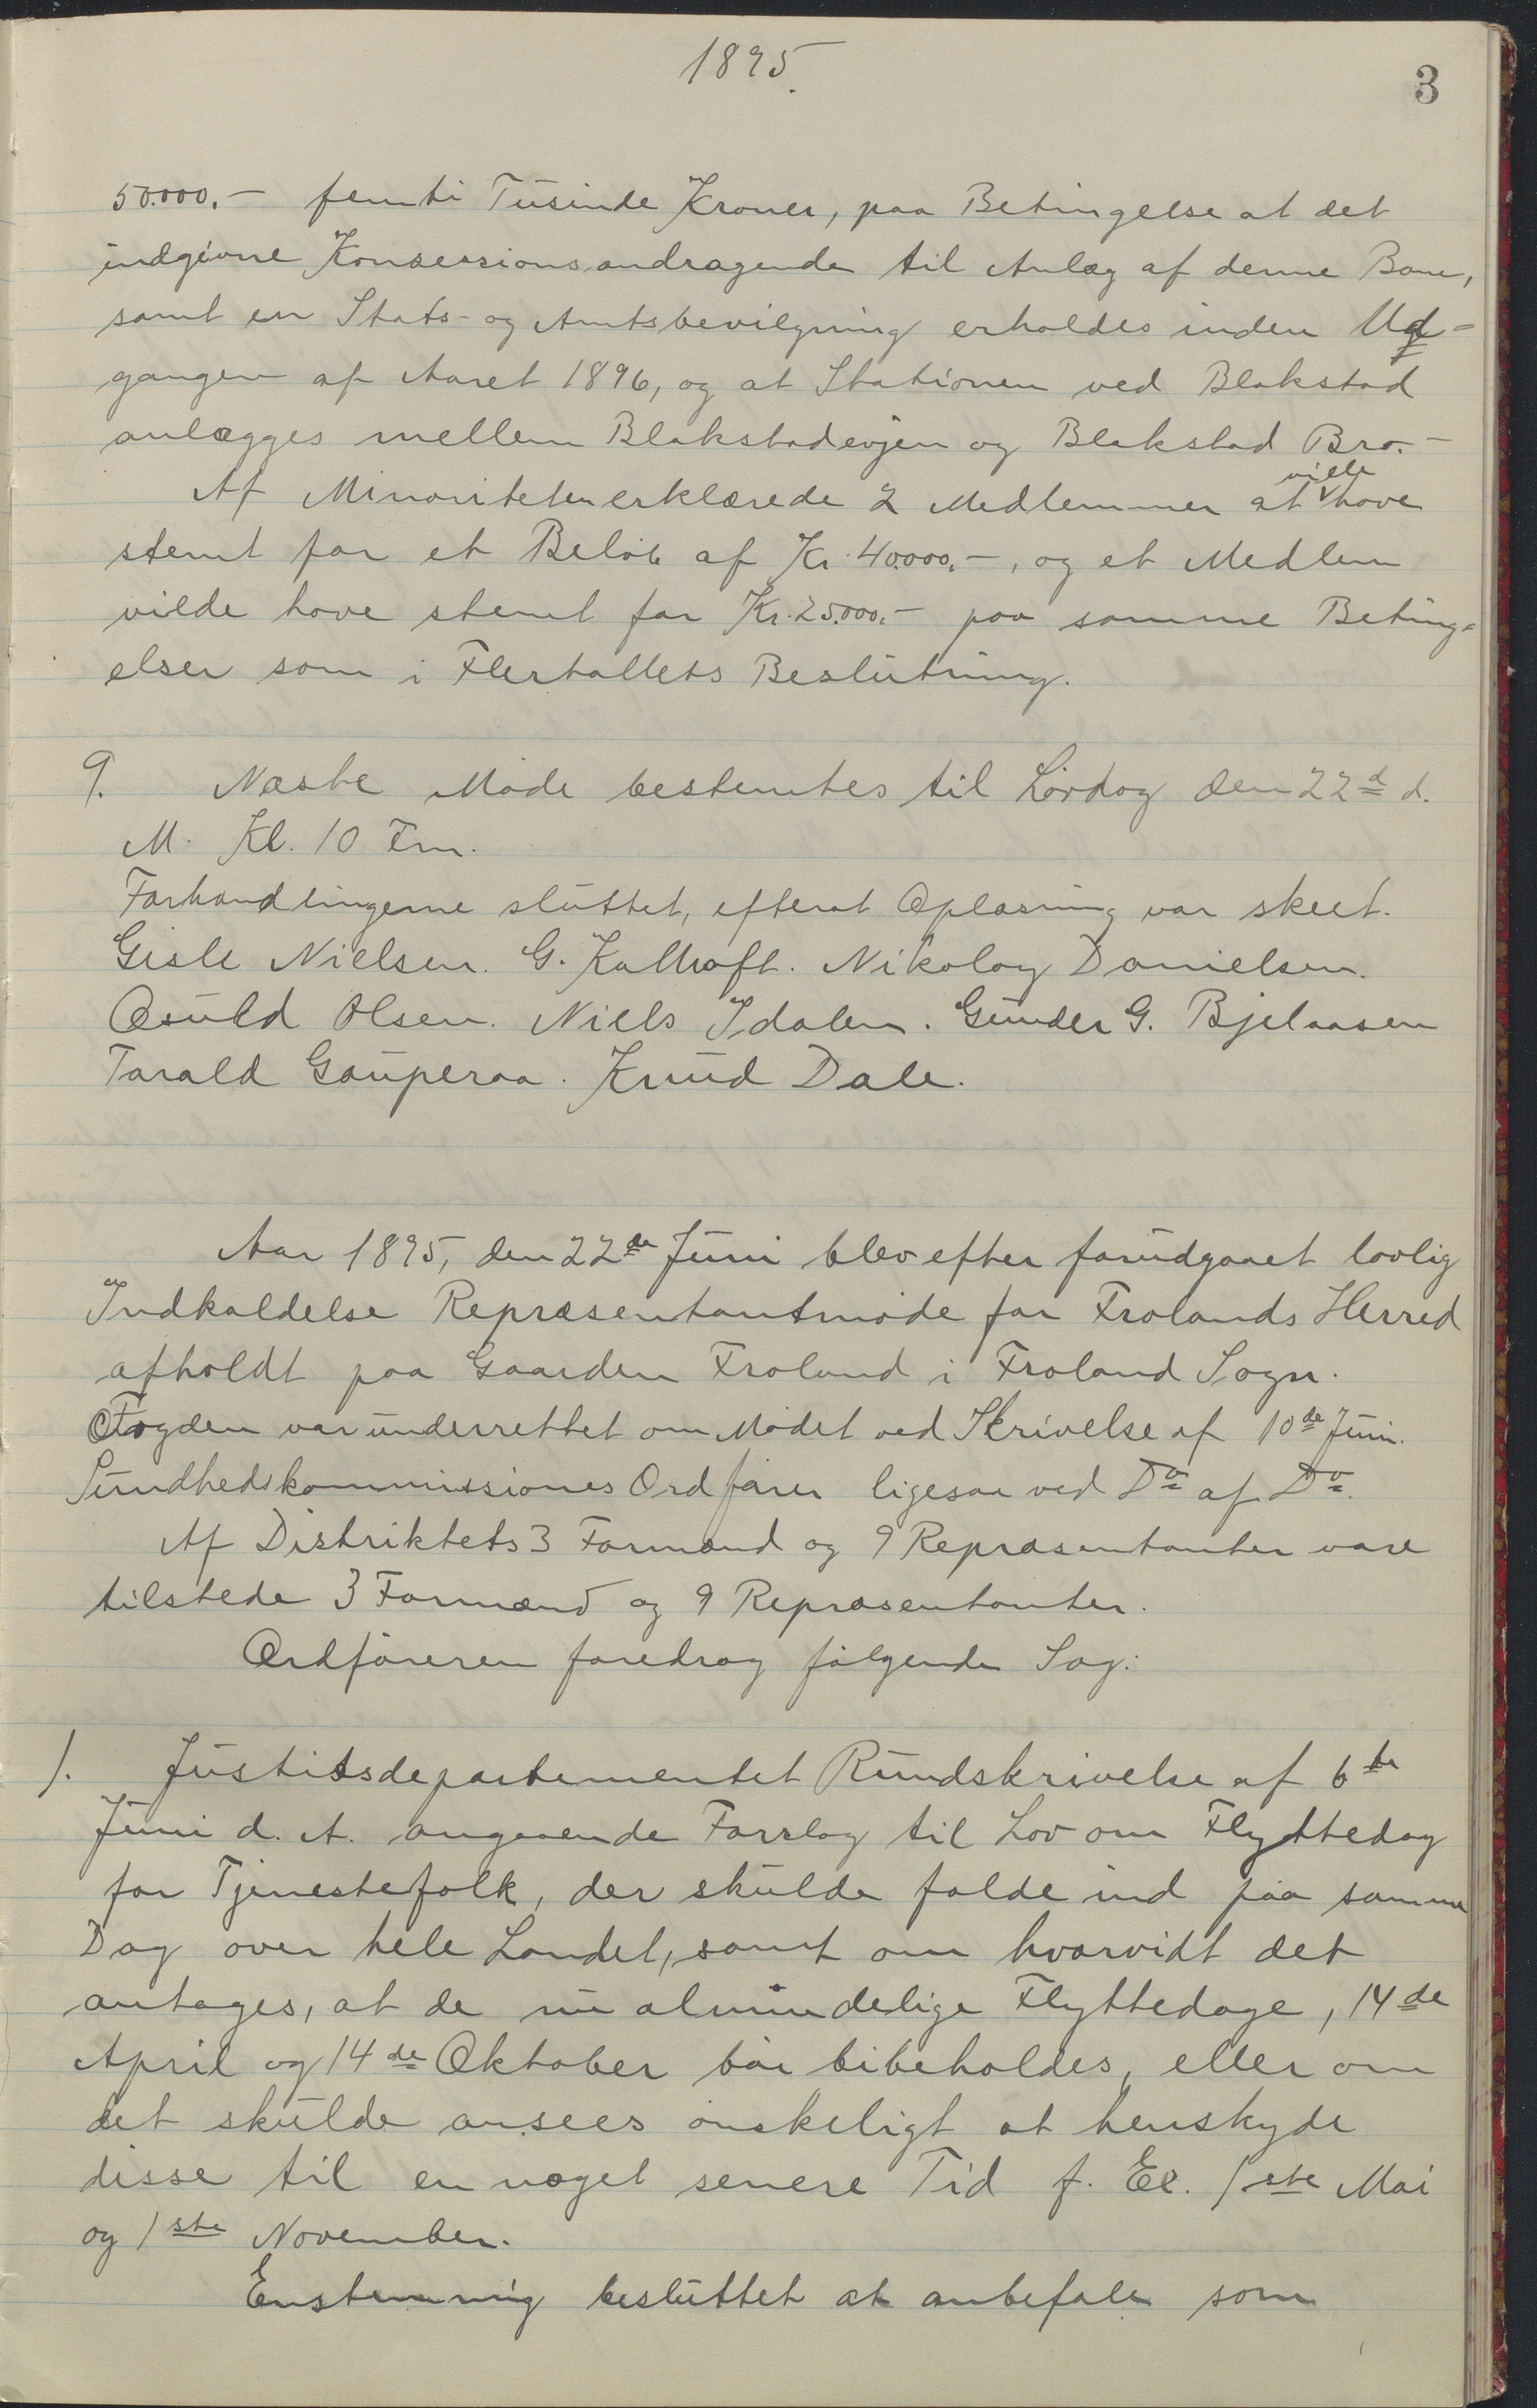 1895.
3
50.000.- femti Tusinde Kroner, paa Betingelse at det
indgivne Konsessionsandragende til Anlæg af denne Bane,
samt en Stats- og Amtsbevilgning erholdes inden Ud-
gangen af Aaret 1896, og at Stationen ved Blakstad
anlægges mellem Blakstadevjen og Blakstad Bro.-
Af Minoriteten erklærede 2 Medlemmer at ville have
stemt for et Beløb af Kr. 40.000.-, og et Medlem
vilde have stemt for Kr. 25.000.- paa samme Beting-
elser som i Flertallets Beslutning.
9. Næste Møde bestemtes til Lørdag den 22d d.
M. Kl. 10 Fm.
Forhandlingerne sluttet, efterat Oplæsning var skeet.
Gisle Nielsen. G. Kalhoft. Nikolay Danielsen.
Osuld Olsen. Niels Ydalen. Gunder G. Bjelaasen
Tarald Gauperaa. Knud Dale.
Aar 1895, den 22de Juni blev efter forudgaaet lovlig
Indkaldelse Repræsentantmøde for Frolands Herred
afholdt paa Gaarden Froland i Froland Sogn.
Fogden var underrettet om Mødet ved Skrivelse af 10de Juni.
Sundhedskommissiones Ordfører ligesaa ved Do af Do.
Af Distriktets 3 Formænd og 9 Repræsentanter vare
tilstede 3 Formænd og 9 Repræsentanter.
Ordføreren foredrog følgende Sag:
1. Justitsdepartementet Rundskrivelse af 6te
Juni d. A. angaaende Forslag til Lov om Flyttedag
for Tjenestefolk, der skulde falde ind paa samme
Dag over hele Landet, samt om hvorvidt det
antages, at de nu almindelige Flyttedage, 14de
April og 14de Oktober bør bibeholdes, eller om
det skulde ansees ønskeligt at henskyde
disse til en noget senere Tid f. Ex. 1ste Mai
og 1ste November.
Enstemmig besluttet at anbefale som